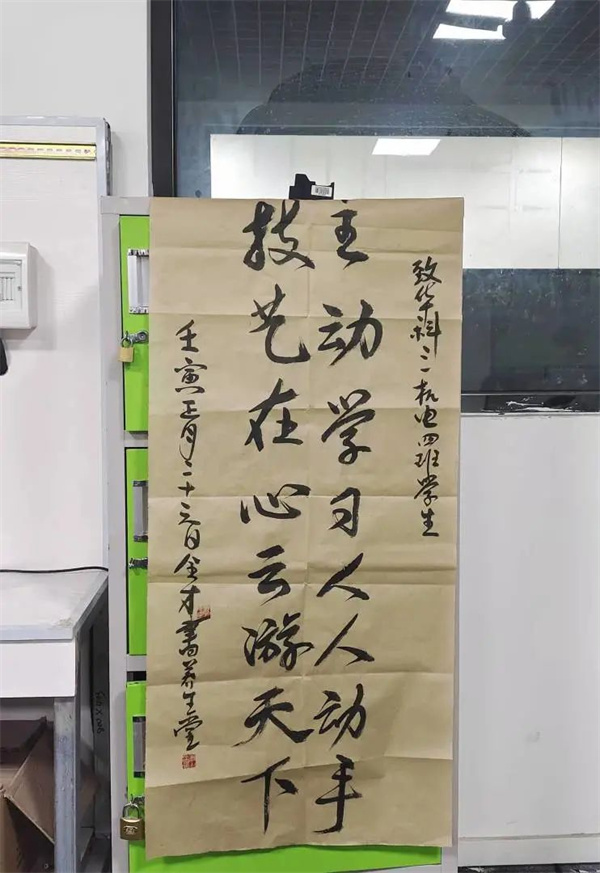 致华科二一机电四班学生
主动学习人人动手
技艺在心云游天下
壬寅正月二十三日全才书养生堂